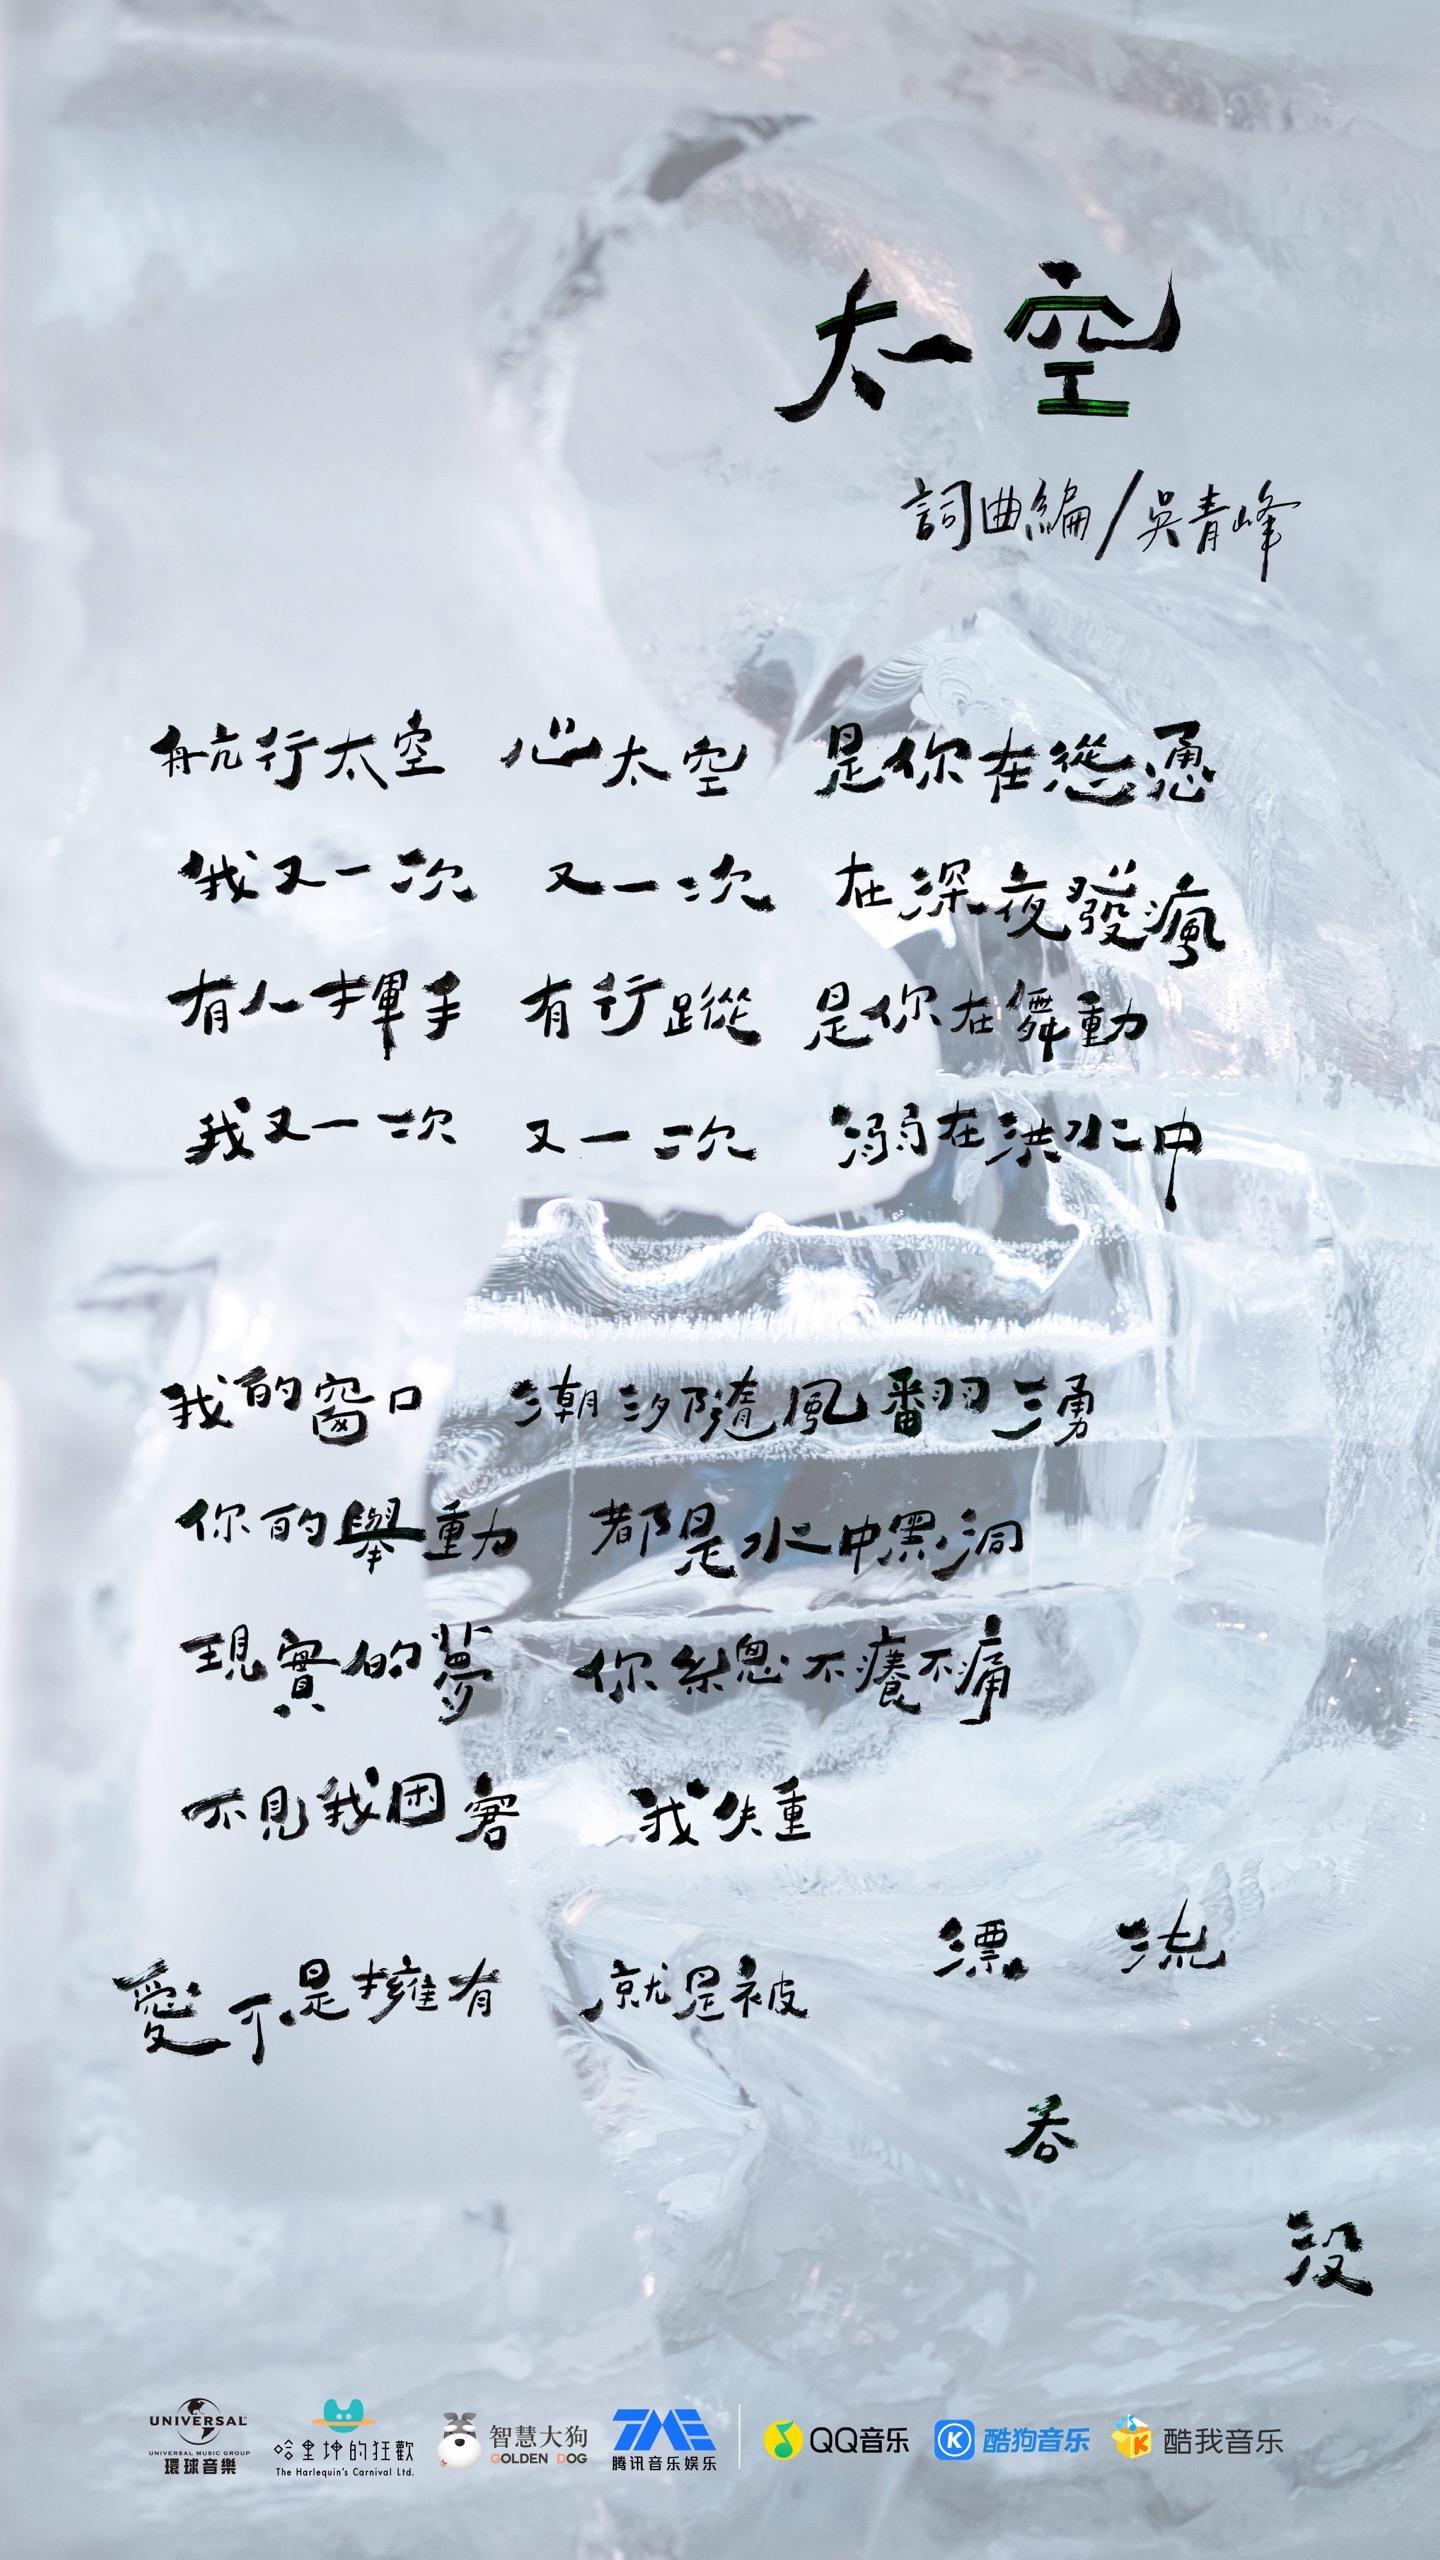 太空
詞曲編/吳青峰
航行太空 心太空 是你在慫恿
我又一次 又一次 在深夜發瘋
有人揮手 有行蹤 是你在舞動
我又一次 又一次 溺在洪水中
我的窗口 潮汐隨風翻湧
你的舉動 都是水中黑洞
現實的夢 你總不癢不痛
不見我困窘 我失重
愛不是擁有 就是被 漂 流
吞
沒
UNIVERSAL
UNIVERSAL MUSIC GROUP
環球音樂
哈里坤的狂歡
The Harlequin's Carnival Ltd.
智慧大狗
GOLDEN DOG
TME
腾讯音乐娱乐
QQ音乐
K
酷狗音乐
K
酷我音乐